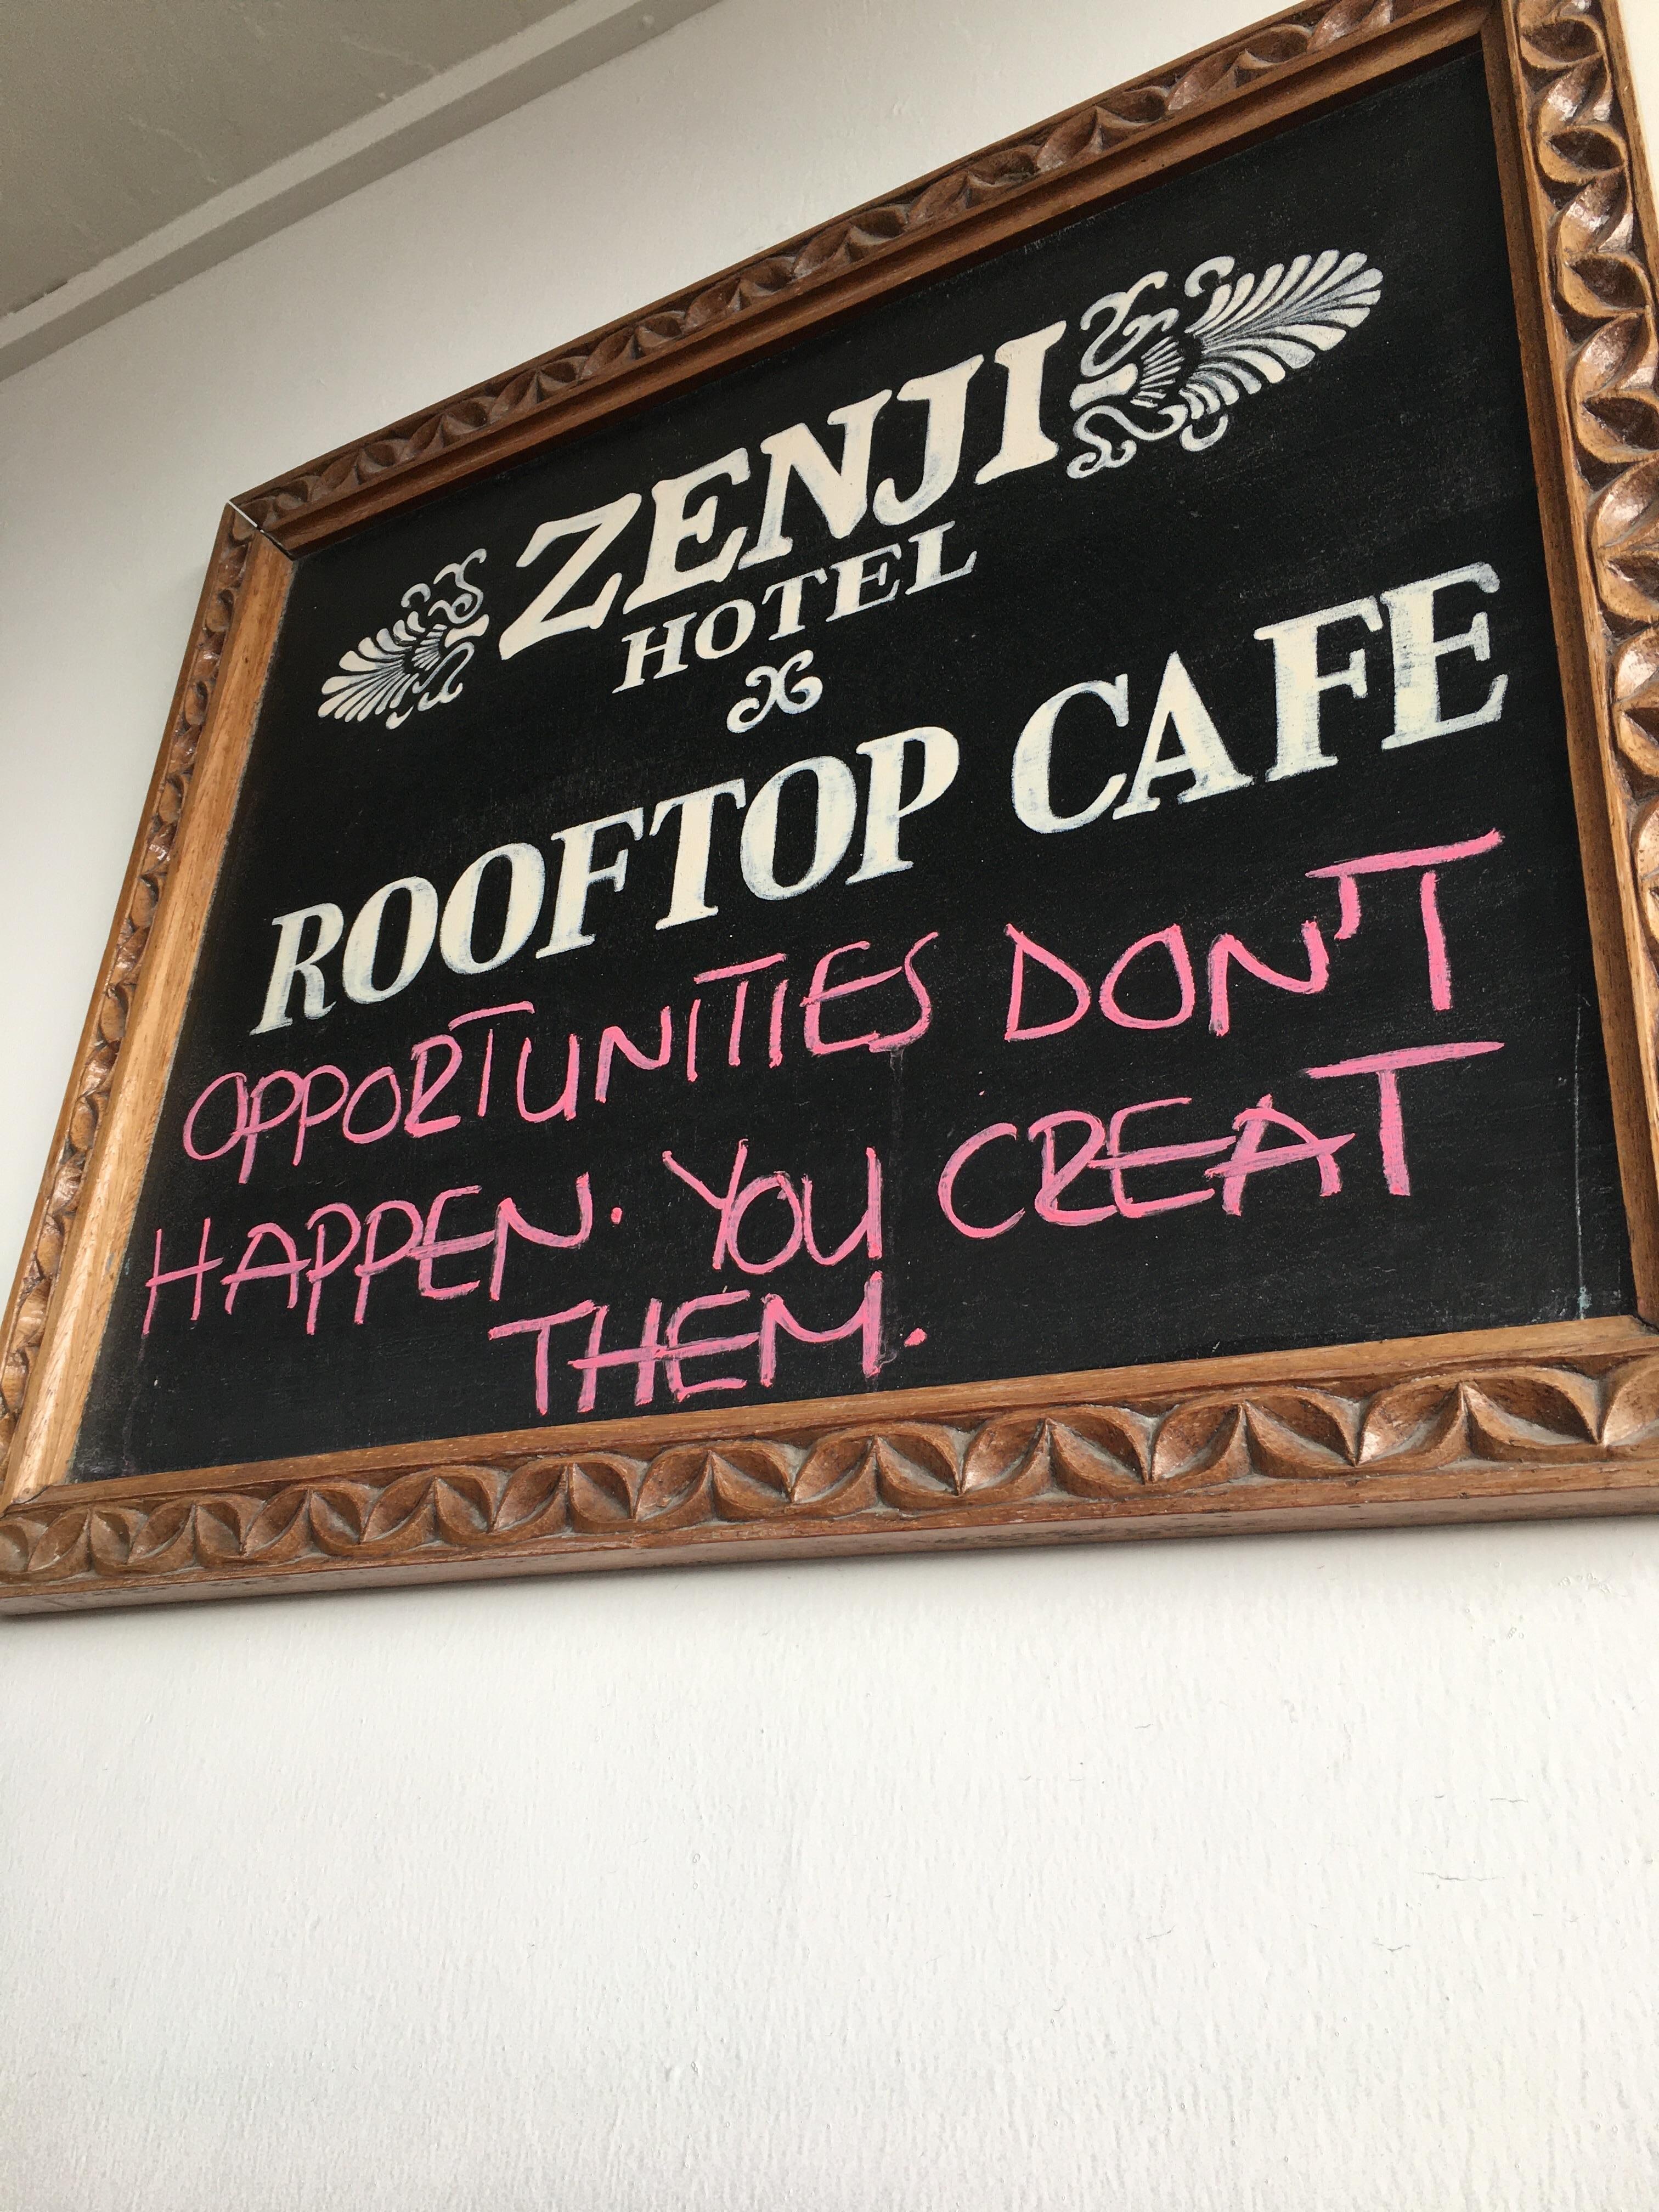 ZENJI
HOTEL
ROOFTOP CAFE
OPPORTUNITIES DON'T
HAPPEN. YOU CREAT
THEM.